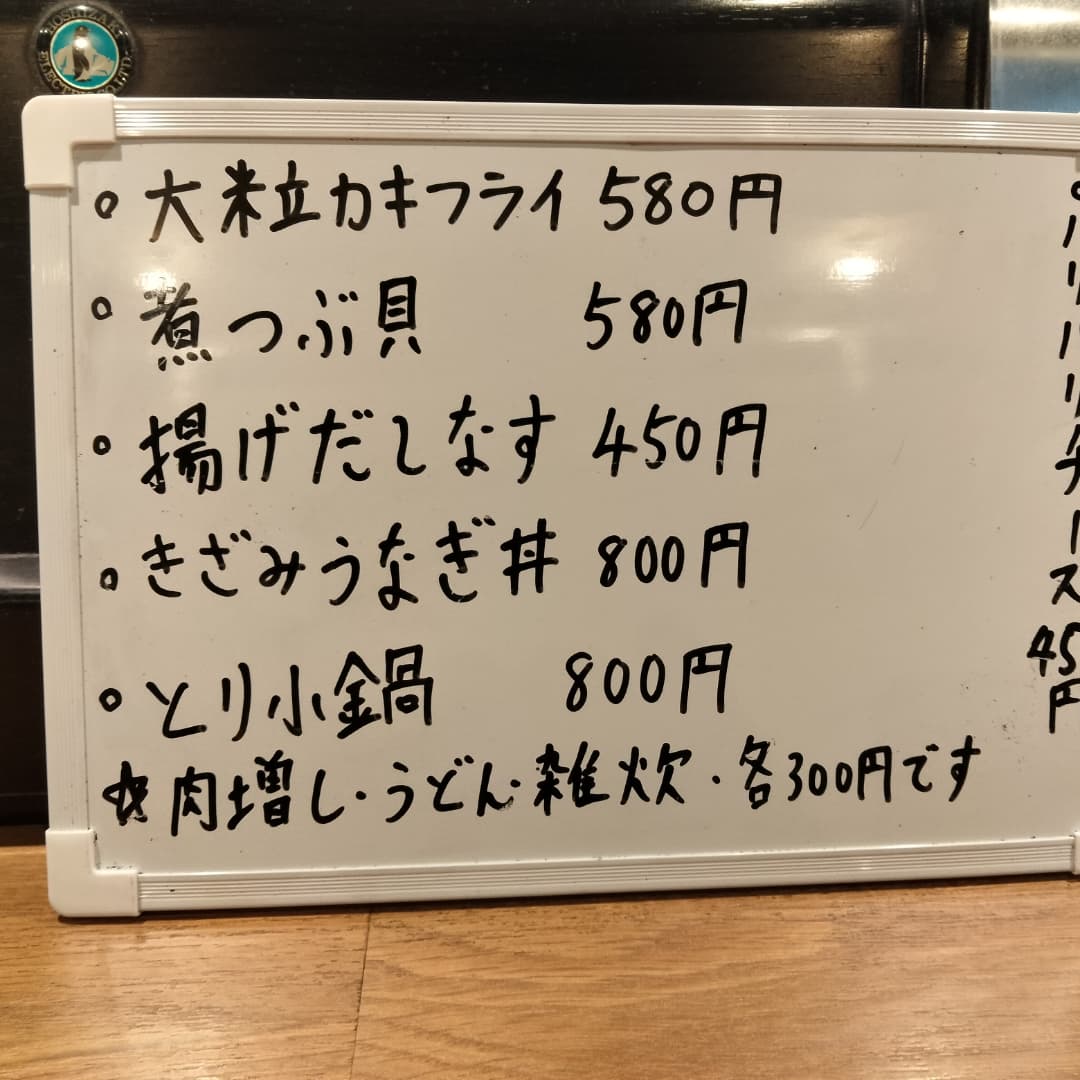 HOSHIZAKI ELECTRIC CO., LTD.
。大粒カキフライ 580円
。煮つぶ貝 580円
。揚げだしなす 450円
。きざみうなぎ丼 800円
。とり小鍋 800円
☆肉増し・うどん・雑炊・各300円です
。パリパリチーズ
45
円